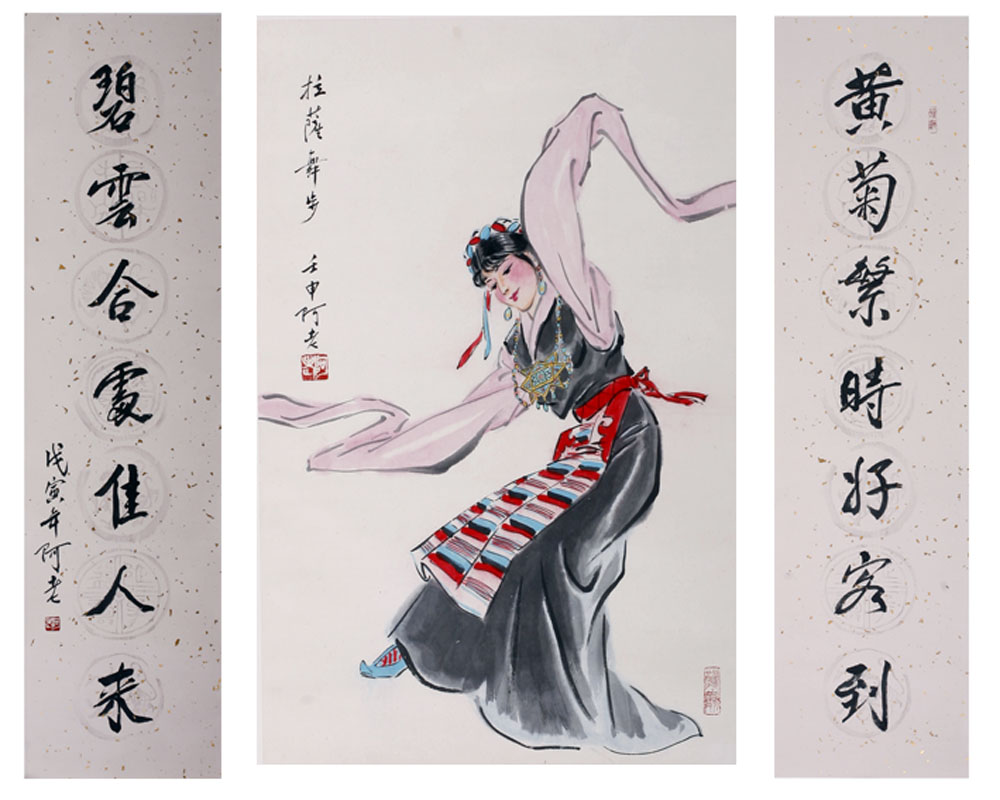 黄菊繁時好客到
拉薩舞步
壬申阿老
碧雲合處佳人来
戊寅年阿老